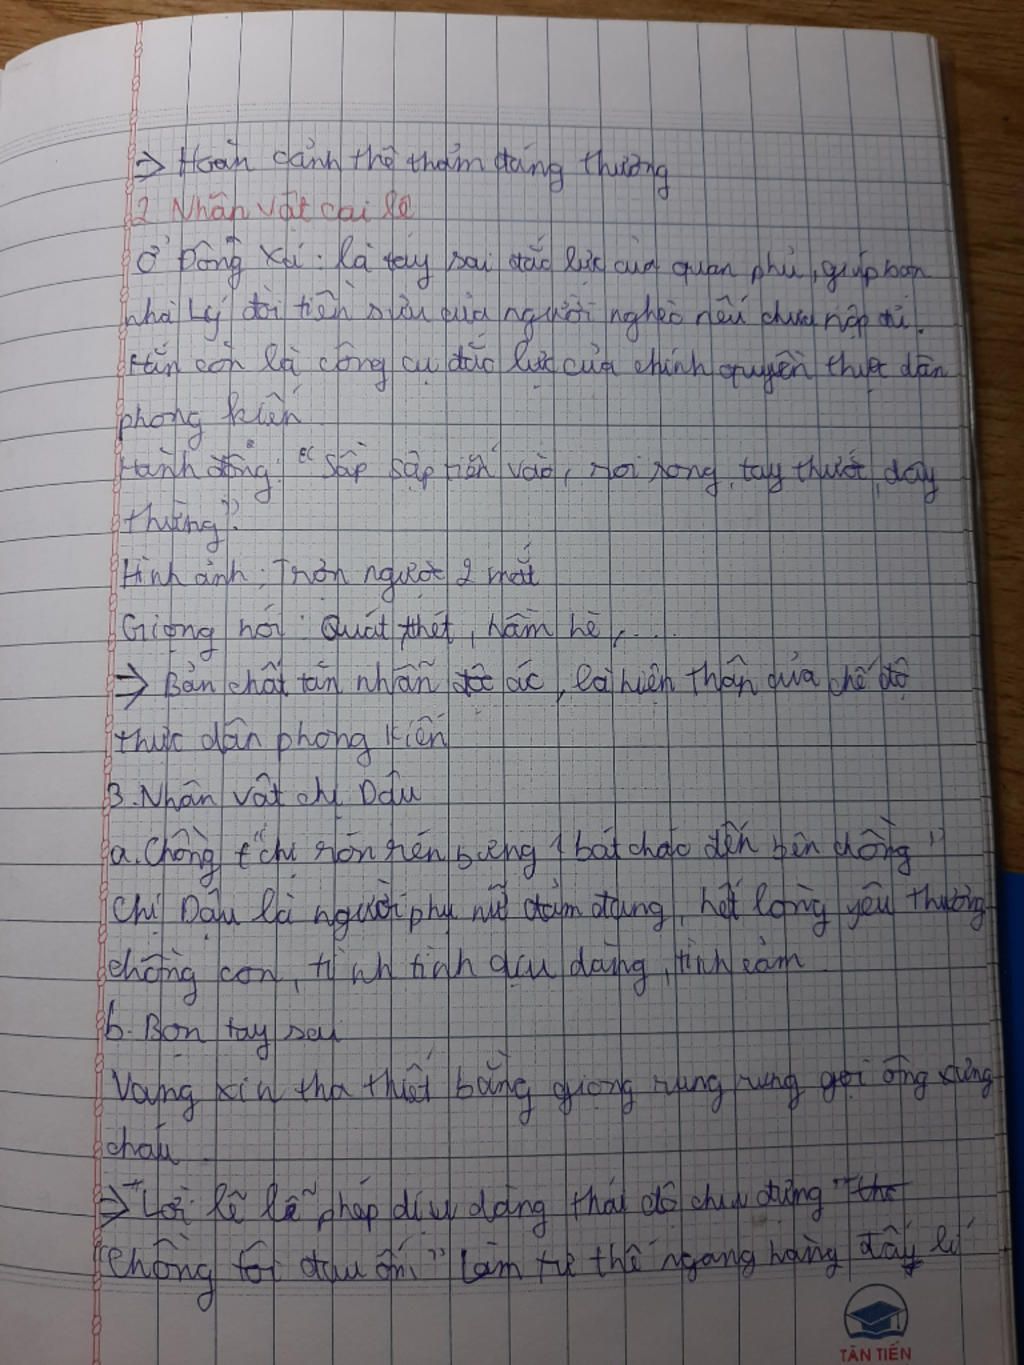 => Hoàn cảnh thê thảm đáng thương
2 Nhân vật cai lệ
Ở Đông Xá: là tay sai đắc lực của quan phủ, giúp bọn
nhà Lý đòi tiền sưu của người nghèo nếu chưa nộp đủ.
Hắn còn là công cụ đắc lực của chính quyền thực dân
phong kiến
Hành động: "Sầp sập tiến vào, roi song, tay thước, dây
thừng".
Hình ảnh: Trợn ngược 2 mắt
Giọng nói: Quát thét, hầm hè,....
=> Bản chất tàn nhẫn ác, là hiện thân của chế độ
thực dân phong kiến
3. Nhân vật chị Dậu
a. Chồng "chị rón rén bưng 1 bát cháo đến bên chồng"
Chị Dậu là người phụ nữ đảm đang, hết lòng yêu thương
chồng con, tính tình dịu dàng, tình cảm
b. Bọn tay sai
Vang xin tha thiết bằng giọng rung rung gọi ông xưng
cháu
=> Lời lẽ lễ phép dịu dàng thái độ chịu đựng "
Chồng tôi đau ốm" làm tư thế ngang hàng đấy lí
TÂN TIẾN